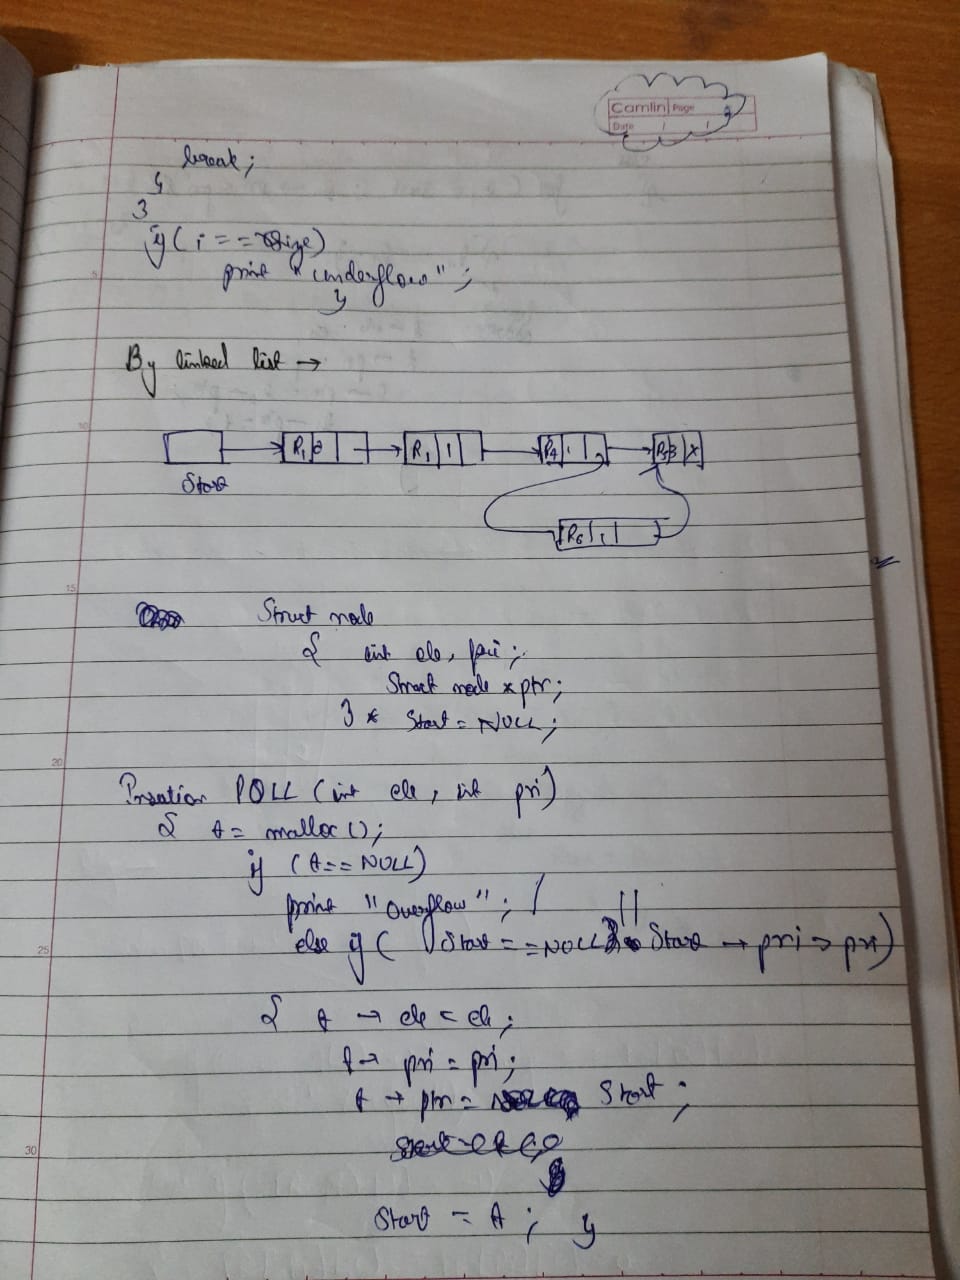 Camlin Page 3
Date / /
break;
}
}
if ( i == size)
print "underflow" ;
}
By linked list →
Start
R, 1
P4 1
P6 1
Struct node
{ int ele, pri ;
Struct node *ptr;
} * Start = NULL;
Insertion PQLL (int ele, int pri)
{ t = malloc();
if (t == NULL)
print "Overflow" ;
else if ( Start == NULL || Start → pri > pri)
{ t → ele = ele ;
t → pri = pri ;
t → ptr = Start ;
Start = t ; }
5
10
15
20
25
30